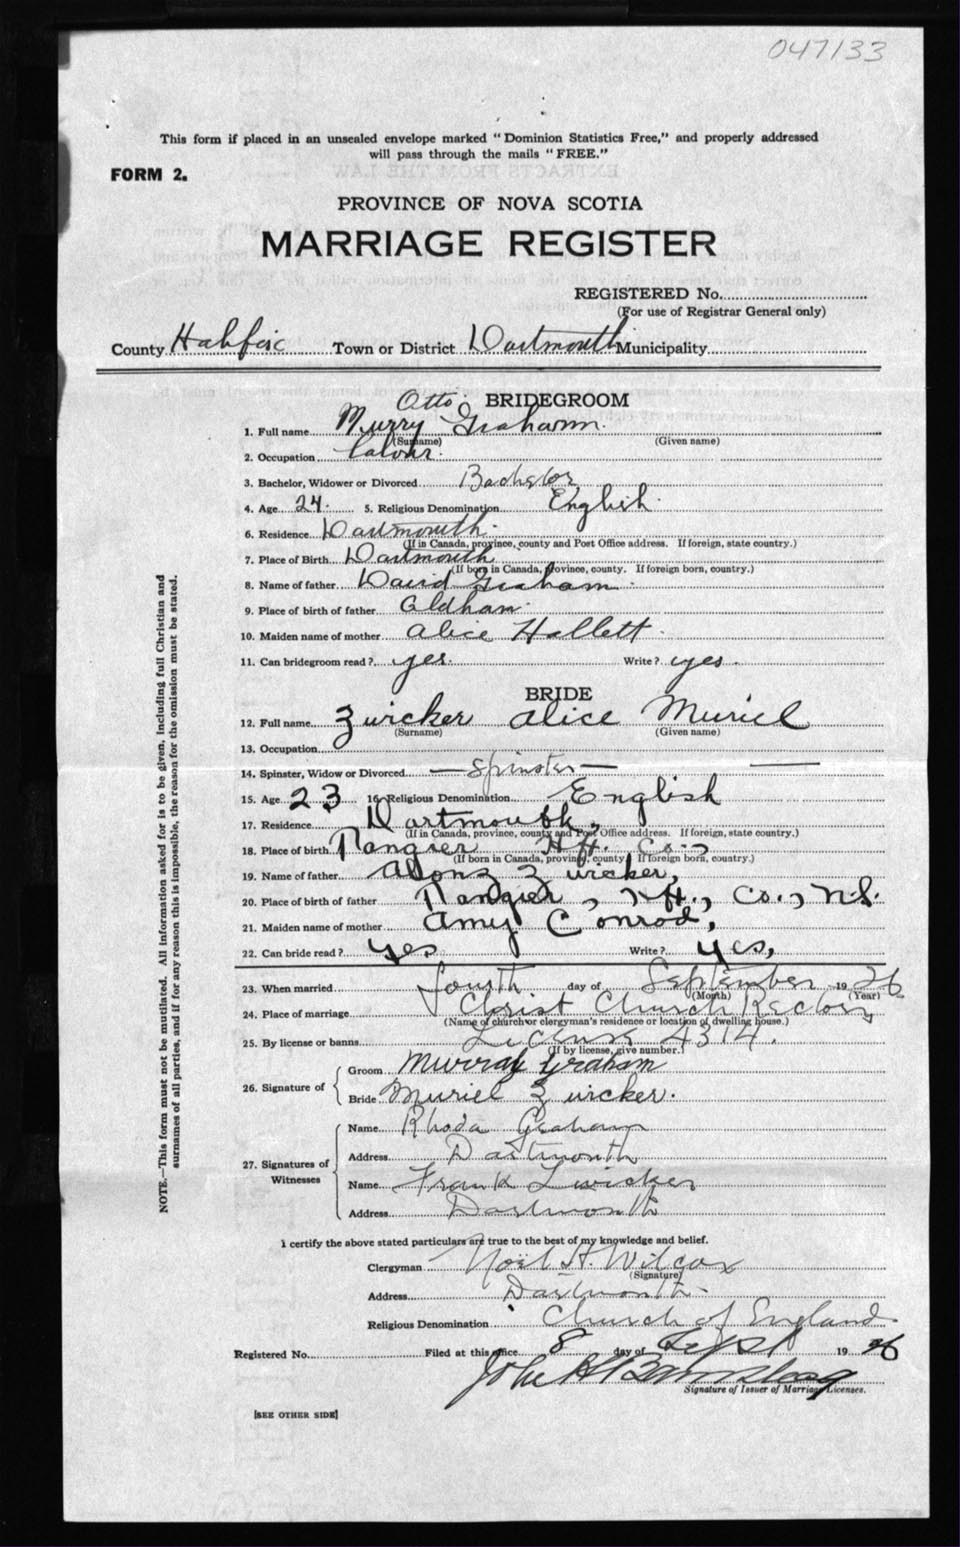 047133
This form if placed in an unsealed envelope marked "Dominion Statistics Free," and properly addressed
will pass through the mails "FREE."
FORM 2.
PROVINCE OF NOVA SCOTIA
MARRIAGE REGISTER
REGISTERED No.
(For use of Registrar General only)
County Halifax Town or District Dartmouth Municipality
BRIDEGROOM
Otto
1. Full name Murry Graham
(Surname) (Given name)
2. Occupation Labour.
3. Bachelor, Widower or Divorced Bachelor
4. Age 24. 5. Religious Denomination English
6. Residence Dartmouth.
(If in Canada, province, county and Post Office address. If foreign, state country.)
7. Place of Birth Dartmouth
(If born in Canada, province, county. If foreign born, country.)
8. Name of father David Graham
9. Place of birth of father Oldham
10. Maiden name of mother Alice Hallett.
11. Can bridegroom read? yes. Write? yes.
BRIDE
12. Full name Zwicker Alice Muriel
(Surname) (Given name)
13. Occupation
14. Spinster, Widow or Divorced — Spinster —
15. Age 23 16. Religious Denomination English
17. Residence Dartmouth,
(If in Canada, province, county and Post Office address. If foreign, state country.)
18. Place of birth Tangier Hfx. Co.,
(If born in Canada, province, county. If foreign born, country.)
19. Name of father Zwicker,
20. Place of birth of father Tangier, Hfx., Co., N.S.
21. Maiden name of mother Amy Conrod,
22. Can bride read? yes Write? yes,
23. When married fourth day of September 1926
(Month) (Year)
24. Place of marriage Christ Church Rectory
(Name of church or clergyman's residence or location of dwelling house.)
25. By license or banns License 4314.
(If by license, give number.)
26. Signature of
Groom Murray Graham
Bride Muriel Zwicker.
27. Signatures of Witnesses
Name Rhoda Graham
Address Dartmouth
Name Frank Zwicker
Address Dartmouth
I certify the above stated particulars are true to the best of my knowledge and belief.
Clergyman Noël H. Wilcox
(Signature)
Address Dartmouth.
Religious Denomination Church of England
Registered No. Filed at this office 8 day of Sept 1926
John
Signature of Issuer of Marriage Licenses.
[SEE OTHER SIDE]
NOTE.—This form must not be mutilated. All information asked for is to be given, including full Christian and
surnames of all parties, and if for any reason this is impossible, the reason for the omission must be stated.